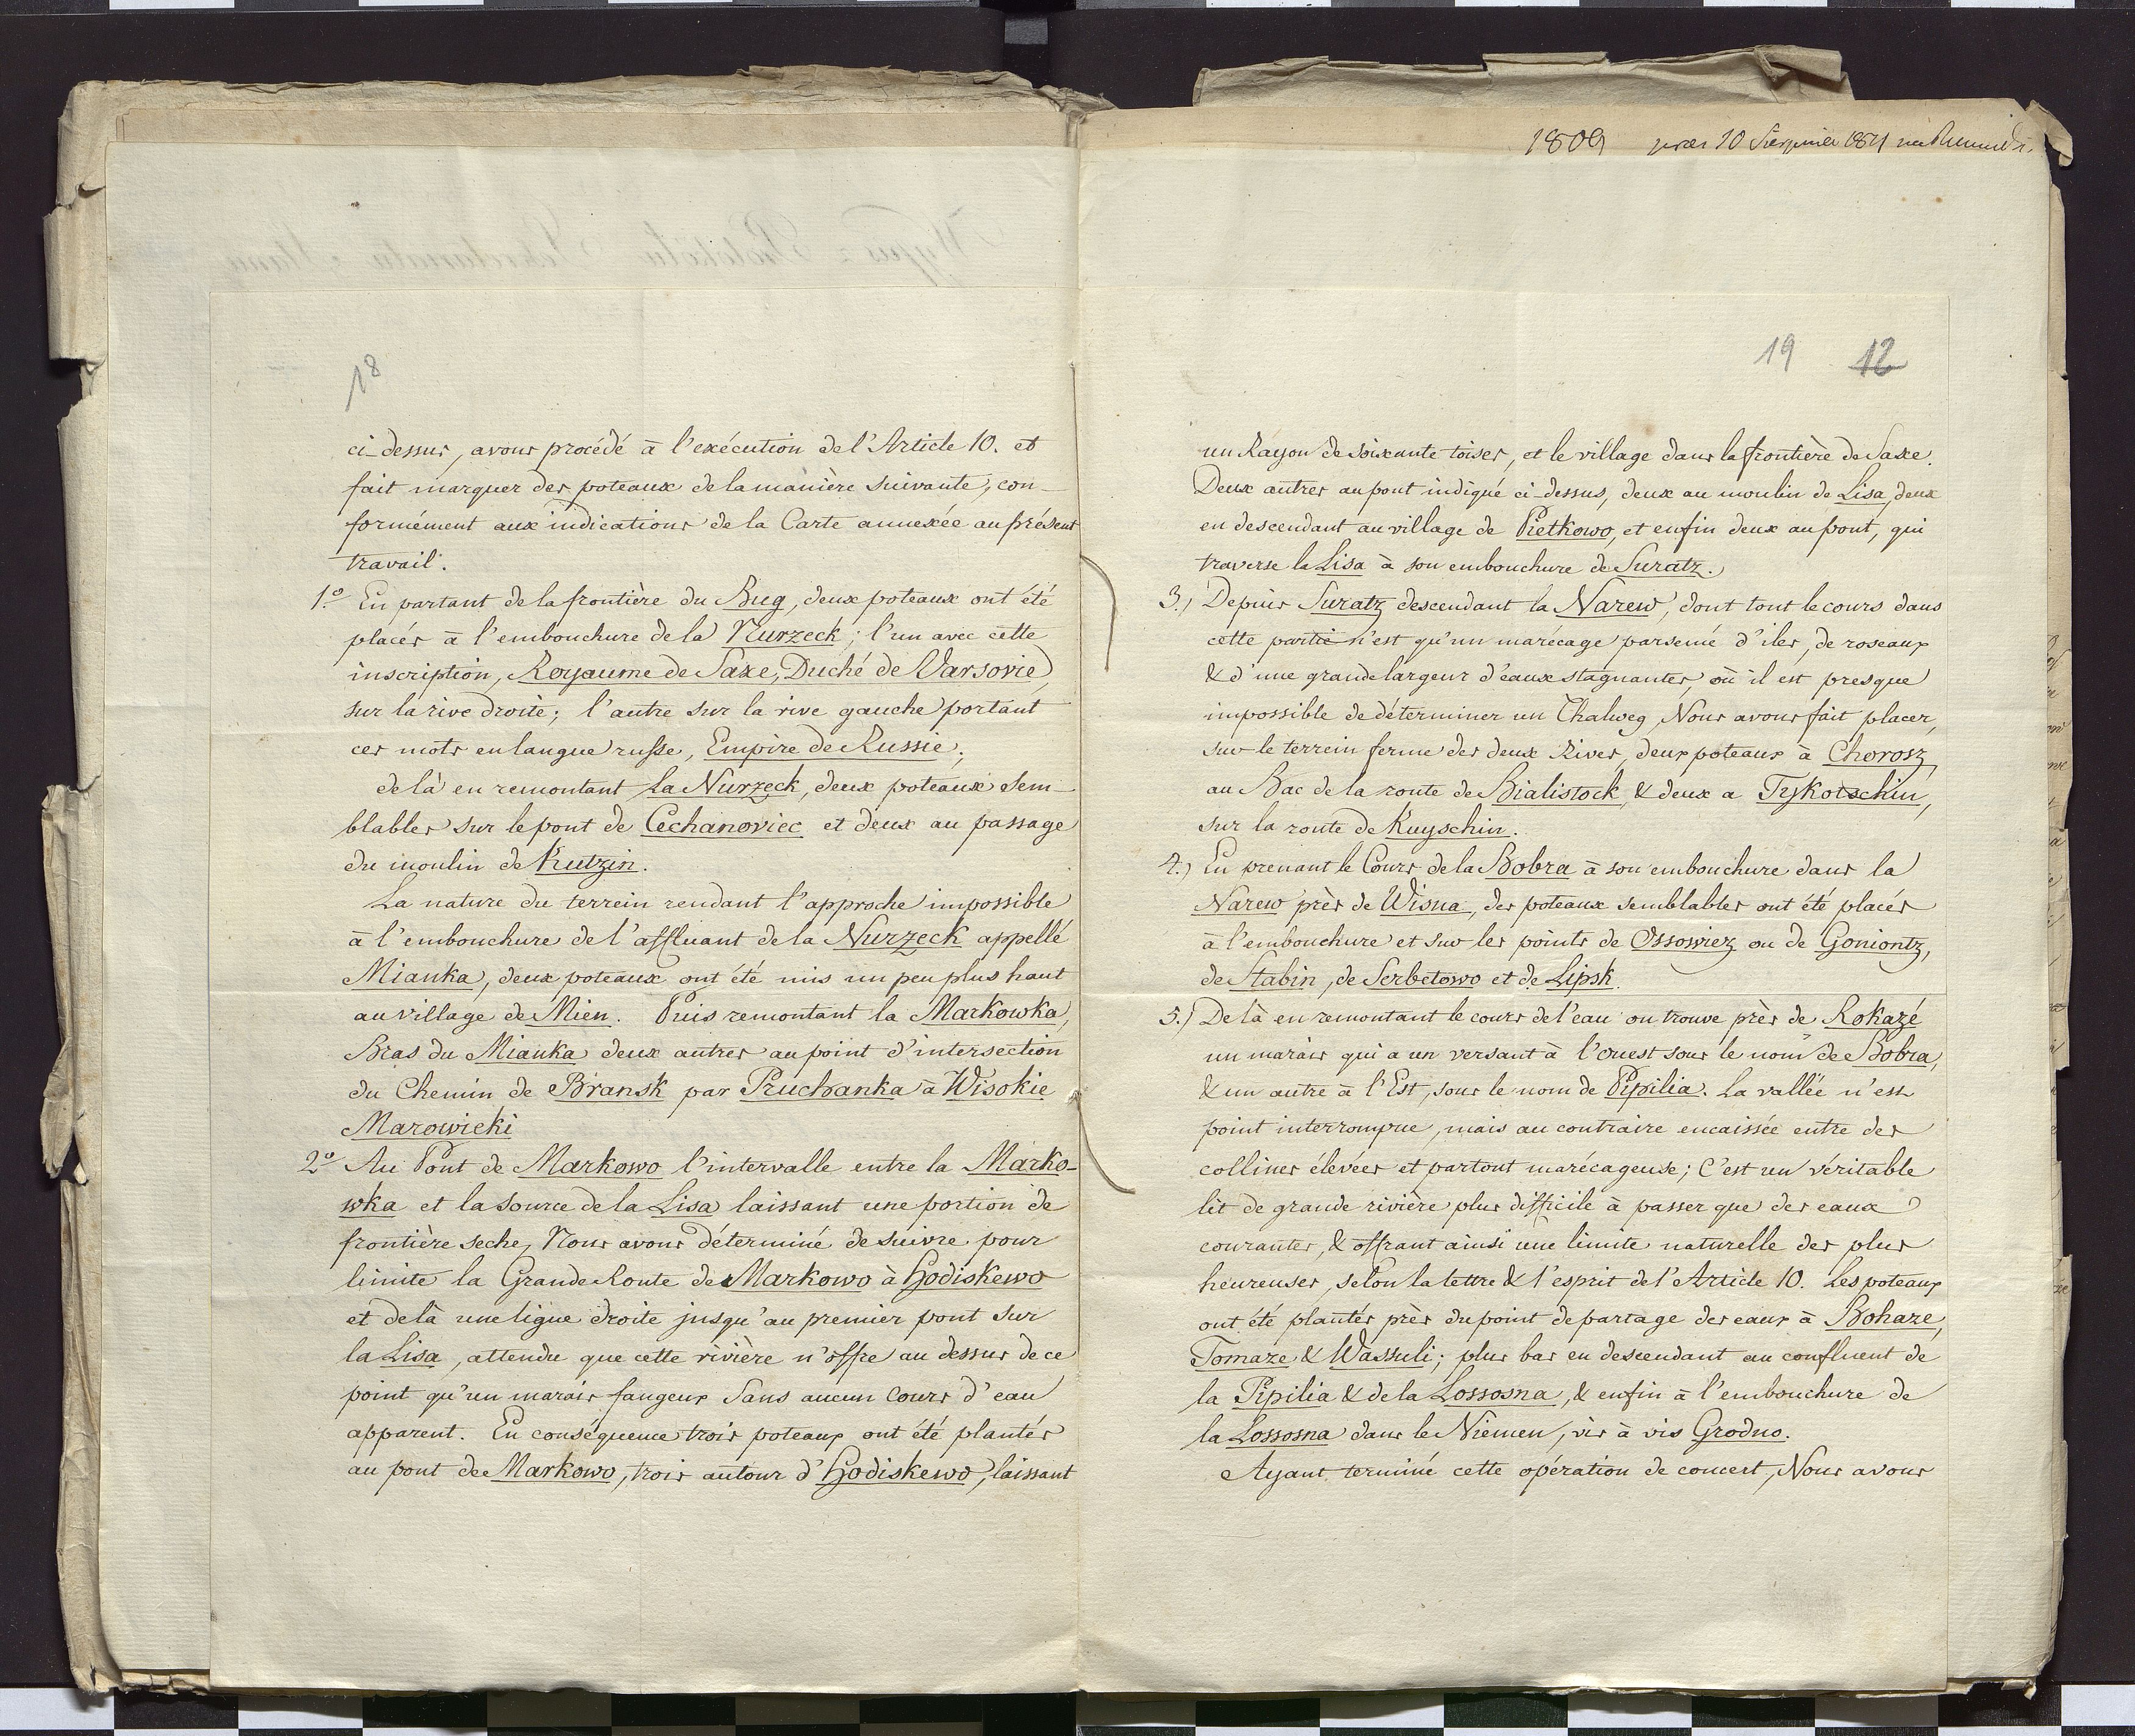 18
ci-dessus, avons procédé à l'exécution de l'Article 10. et
fait marquer des poteaux de la manière suivante, con-
formément aux indications de la Carte annexée au présent
travail.
1.° En partant de la frontière du Bug, deux poteaux ont été
placés à l'embouchure de la Nurzeck; l'un avec cette
inscription, Royaume de Saxe, Duché de Varsovie,
sur la rive droite; l'autre sur la rive gauche portant
ces mots en langue russe, Empire de Russie;
de là en remontant la Nurzeck, deux poteaux sem-
blables sur le pont de Cechanoviec et deux au passage
du moulin de Kutzin.
La nature du terrein rendant l'approche impossible
à l'embouchure de l'affluant de la Nurzeck appellé
Mianka, deux poteaux ont été mis un peu plus haut
au village de Mien. Puis remontant la Markowka,
Bras du Mianka deux autres au point d'intersection
du Chemin de Bransk par Pruchanka à Wisokie
Marowieki
2° Au Pont de Markowo l'intervalle entre la Marko-
wka et la source de la Lisa laissant une portion de
frontière seche, Nous avons déterminé de suivre pour
limite la Grande Route de Markowo à Hodiskewo
et de là une ligne droite jusqu'au premier pont sur
la Lisa, attendu que cette rivière n'offre au dessus de ce
point qu'un marais fangeux sans aucun cours d'eau
apparent. En conséquence trois poteaux ont été plantés
au pont de Markowo, trois autour d'Hodiskewo, laissant
1809 10 1841
19 12
un Rayon de soixante toises, et le village dans la frontière de Saxe.
Deux autres au pont indiqué ci-dessus, deux au moulin de Lisa, deux
en descendant au village de Pietkowo, et enfin deux au pont, qui
traverse la Lisa à son embouchure de Suratz.
3.) Depuis Suratz descendant la Narew, dont tout le cours dans
cette partie n'est qu'un marécage parsemé d'iles, de roseaux
& d'une grande largeur d'eaux stagnantes, où il est presque
impossible de déterminer un Thalweg, Nous avons fait placer,
sur le terrein ferme des deux Rives, deux poteaux à Chorosz,
au Bac de la route de Bialistock, & deux a Tykotschin,
sur la route de Knyschin.
4.) En prenant le Cours de la Bobra à son embouchure dans la
Narew près de Wisna, des poteaux semblables ont été placés
à l'embouchure et sur les points de Ossowiez ou de Goniontz,
de Stabin, de Serbetowo et de Lipsk.
5.) De là en remontant le cours de l'eau on trouve près de Rokazé
un marais qui a un versant à l'ouest sous le nom de Bobra,
& un autre à l'Est, sous le nom de Pipilia. La vallée n'est
point interrompue, mais au contraire encaissée entre des
collines élevées et partout marécageuse; C'est un véritable
lit de grande rivière plus difficile à passer que des eaux
courantes, & offrant ainsi une limite naturelle des plus
heureuses, selon la lettre & l'esprit de l'Article 10. Les poteaux
ont été plantés près du point de partage des eaux à Bohaze,
Tomaze & Wassuli; plus bas en descendant au confluent de
la Pipilia & de la Lossosna, & enfin à l'embouchure de
la Lossosna dans le Niemen, vis à vis Grodno.
Ayant terminé cette opération de concert, Nous avons